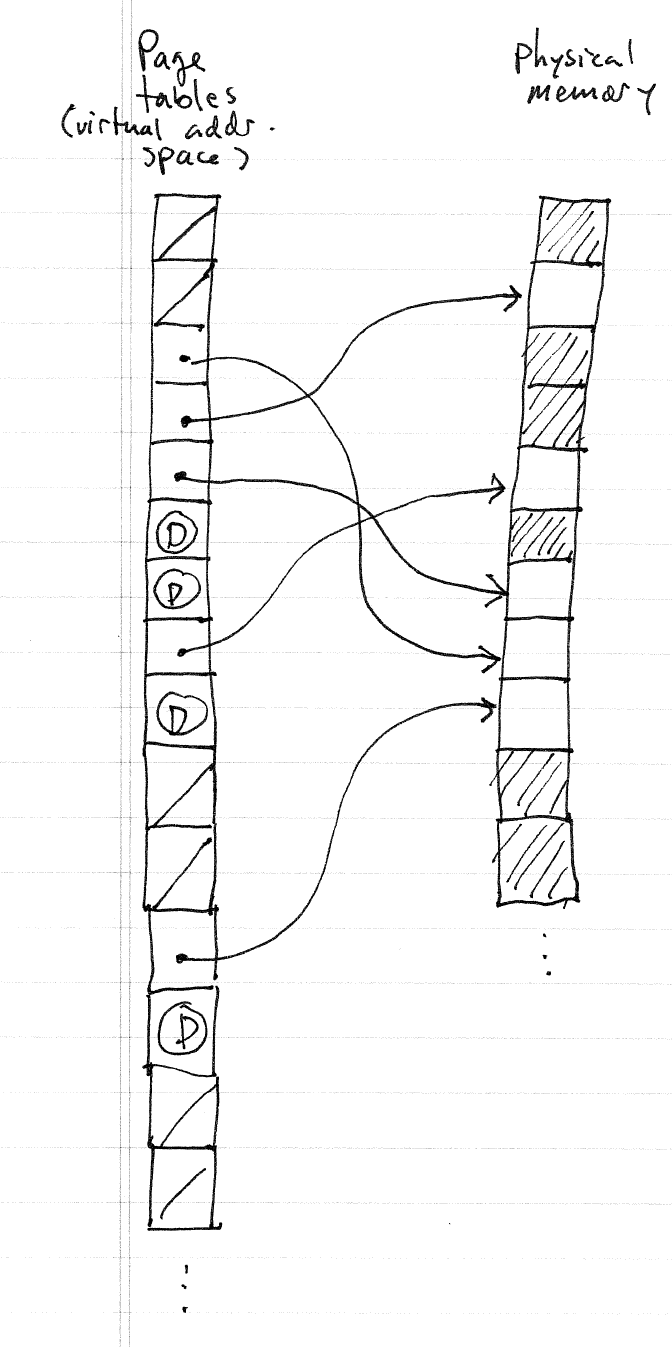 Page
tables
(virtual addr.
space)
physical
memory
D
D
D
D